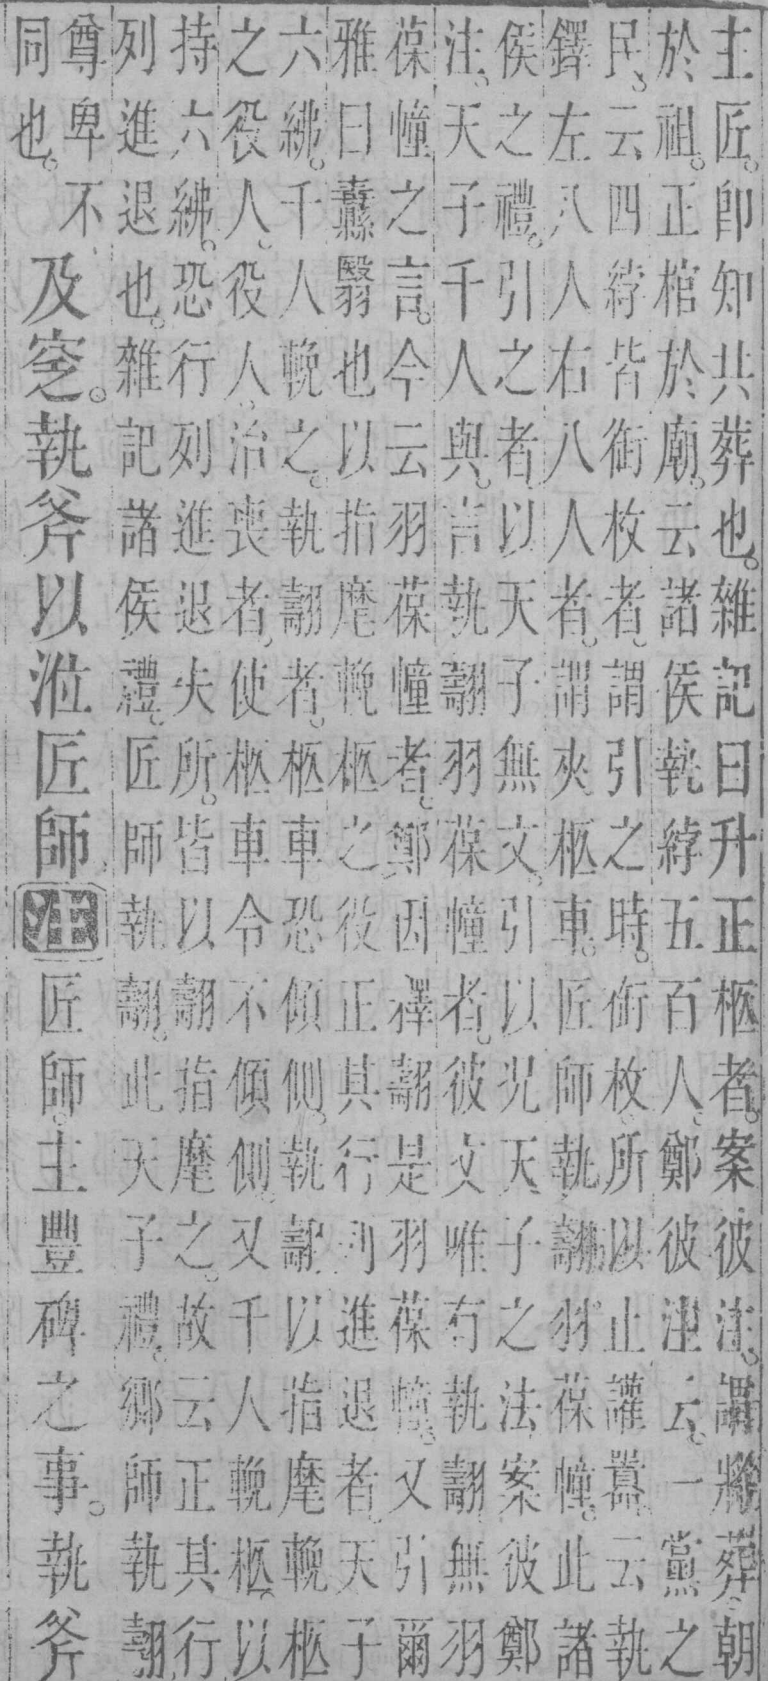 主匠。卽知共葬也。雜記曰升正柩者。案彼注。謂將葬朝
於祖。正棺於廟。云諸侯執綍五百人。鄭彼注云。一黨之
民、云四綍皆銜枚者、謂引之時。銜枚所以止讙囂云執
鐸左八人右八人者。謂夾柩車。匠師執翿羽葆幢。此諸
侯之禮。引之者以天子無文、引以況天子之法案彼鄭
注、天子千人與、言執翿羽葆幢者。彼文唯有執翿無羽
葆幢之言。今云羽葆幢者、鄭因釋翿是羽葆幢。又引爾
雅曰纛翳也以指麾輓柩之役正其行列進退者。天子
六紼。千人輓之。執翿者。柩車恐傾側。執翿以指麾輓柩
之役人。役人、治喪者、使柩車令不傾側。又千人輓柩。以
持六紼。恐行列進退失所。皆以翿指麾之。故云正其行
列進退也。雜記諸侯禮。匠師執翿。此天子禮。鄉師執翿
尊卑不
同也。
及窆。執斧以涖匠師、注匠師。主豐碑之事。執斧